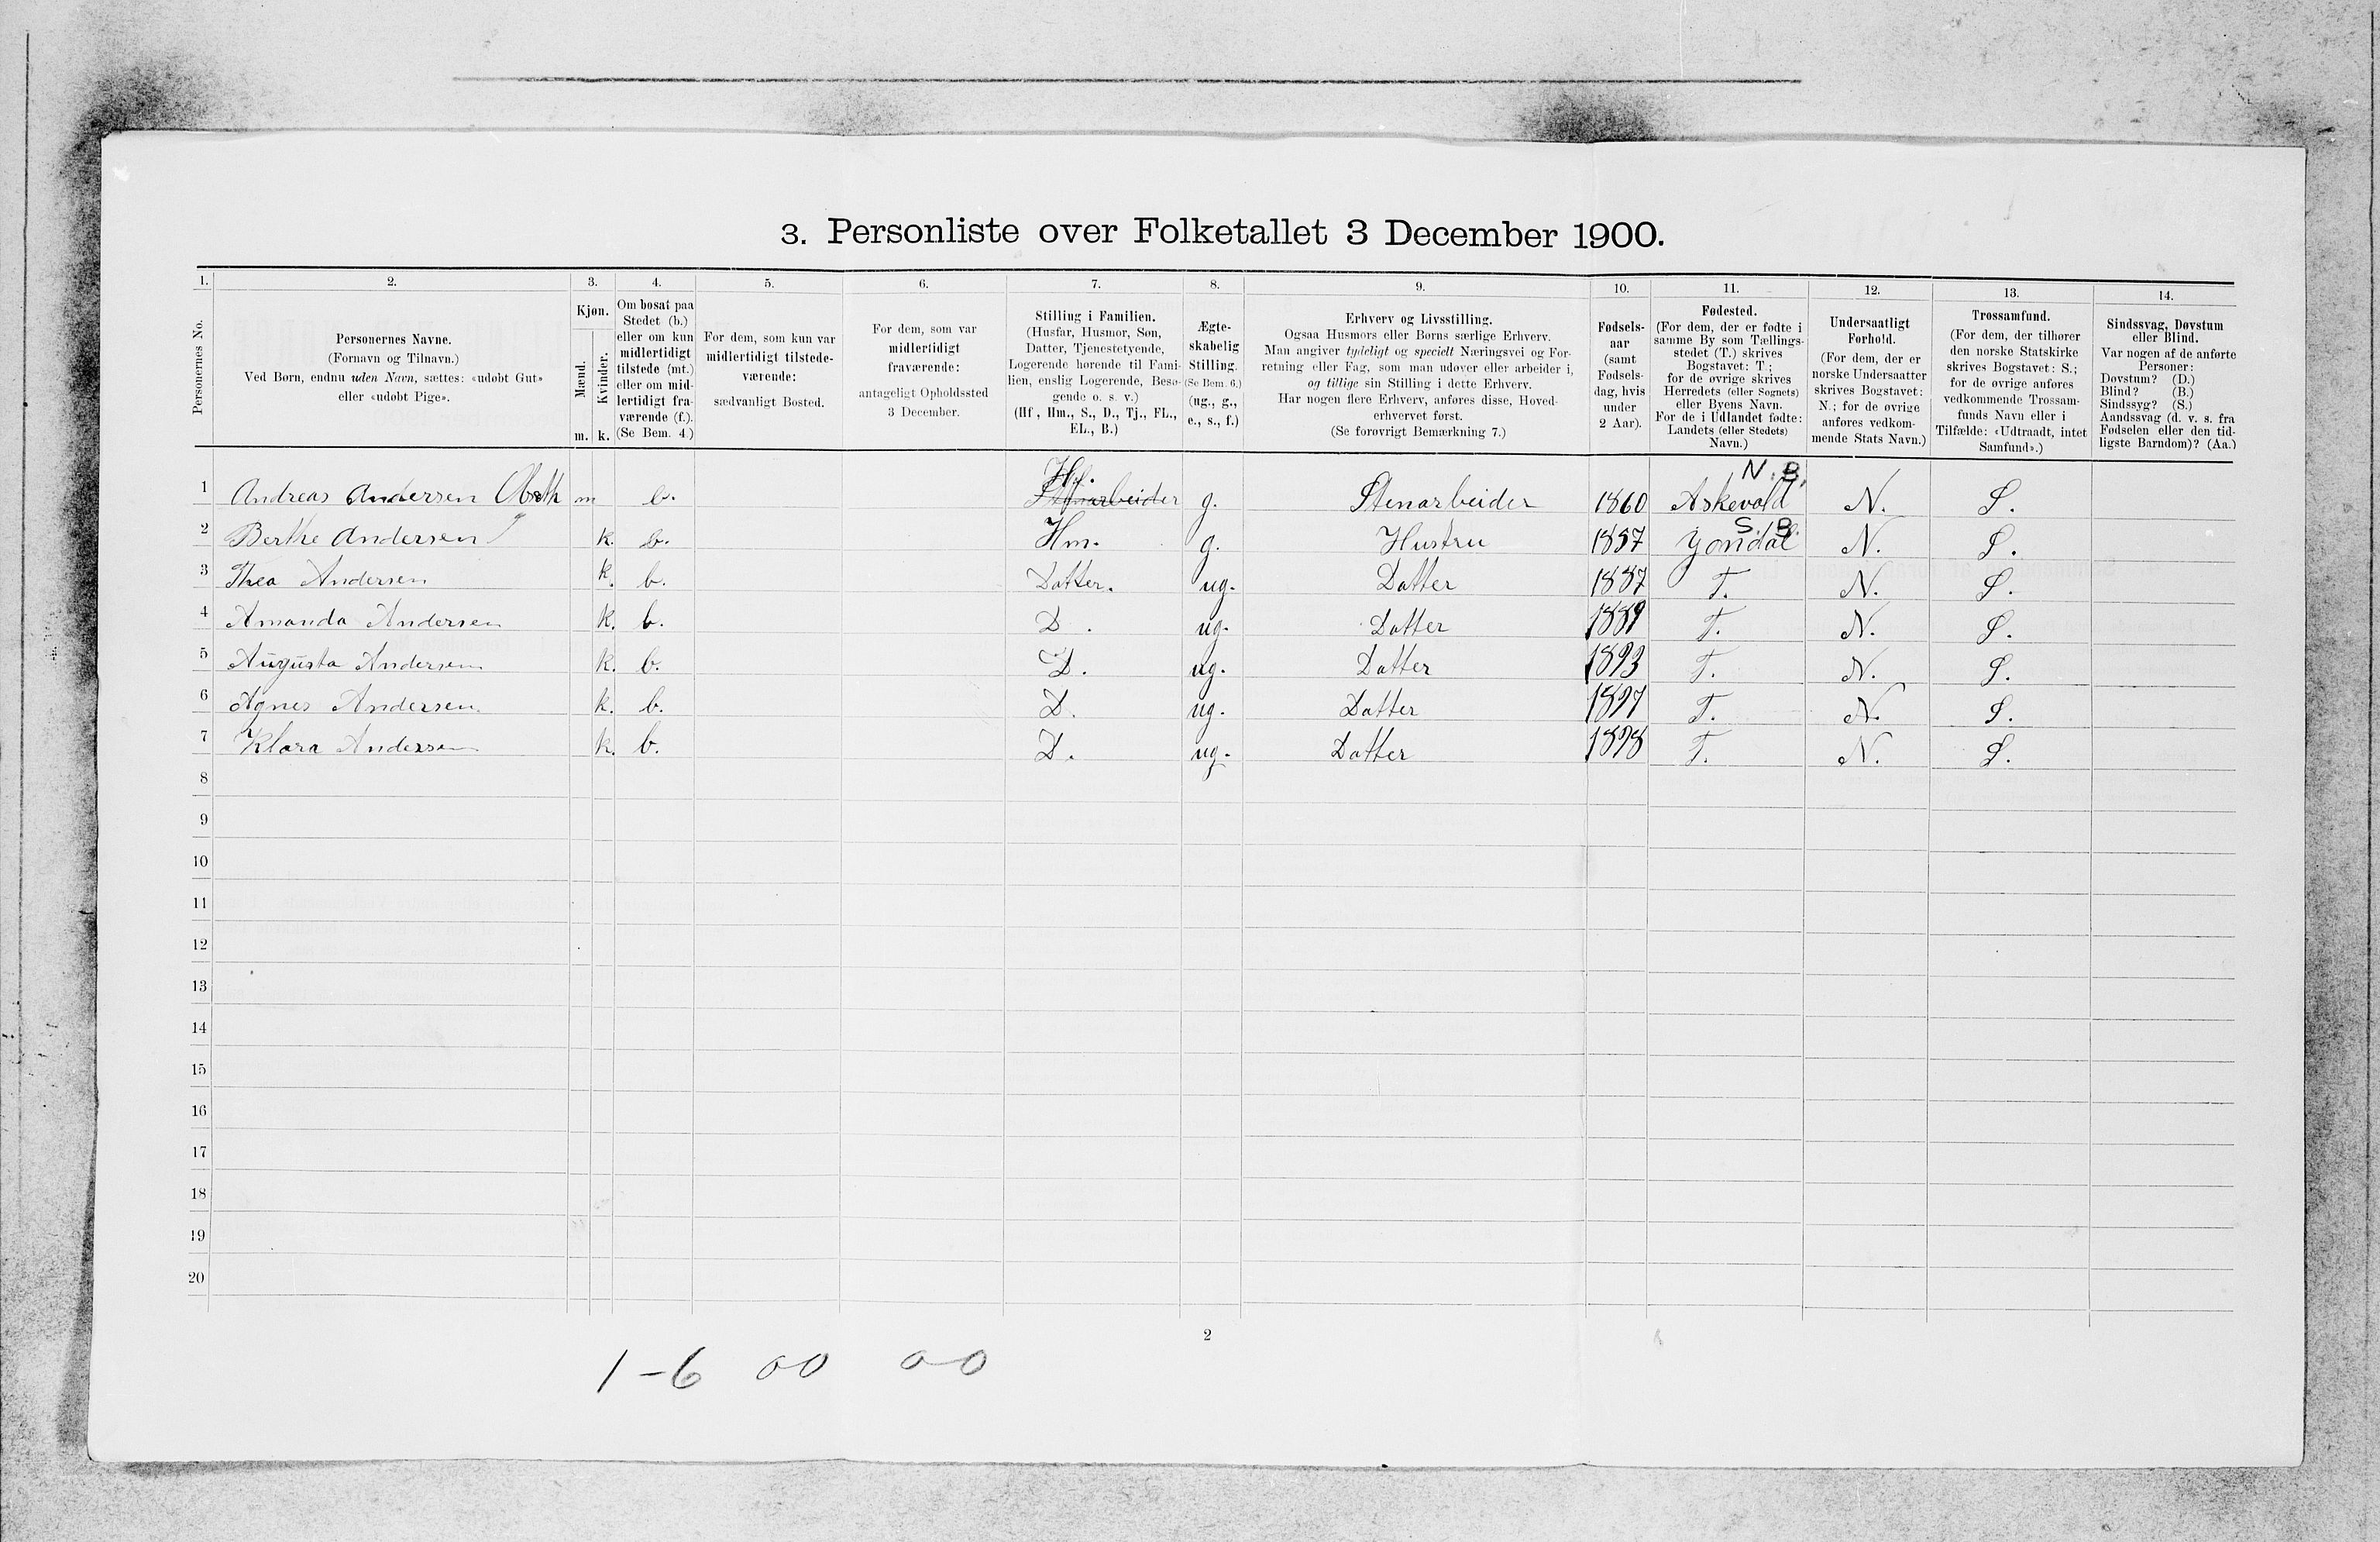 3. Personliste over Folketallet 3 December 1900.
1. 2. 3. 4. 5. 6. 7. 8. 9. 10. 11. 12. 13. 14.
Personernes No.
Personernes Navne.
(Fornavn og Tilnavn.)
Ved Børn, endnu uden Navn, sættes: «udøbt Gut»
eller «udøbt Pige».
Kjøn.
Mænd.
Kvinder.
m. k.
Om bosat paa
Stedet (b.)
eller om kun
midlertidigt
tilstede (mt.)
eller om mid-
lertidigt fra-
værende (f.).
(Se Bem. 4.)
For dem, som kun var
midlertidigt tilstede-
værende:
sædvanligt Bosted.
For dem, som var
midlertidigt
fraværende:
antageligt Opholdssted
3 December.
Stilling i Familien.
(Husfar, Husmor, Søn,
Datter, Tjenestetyende,
Logerende hørende til Fami-
lien, enslig Logerende, Besø-
gende o. s. v.)
(Hf, Hm., S., D., Tj., FL.,
EL., B.)
Ægte-
skabelig
Stilling.
(Se Bem. 6.)
(ug., g.,
e., s., f.)
Erhverv og Livsstilling.
Ogsaa Husmors eller Børns særlige Erhverv.
Man angiver tydeligt og specielt Næringsvei og For-
retning eller Fag, som man udøver eller arbeider i,
og tillige sin Stilling i dette Erhverv.
Har nogen flere Erhverv, anføres disse, Hoved-
erhvervet først.
(Se forøvrigt Bemærkning 7.)
Fødsels-
aar
(samt
Fødsels-
dag, hvis
under
2 Aar).
Fødested.
(For dem, der er fødte i
samme By som Tællings-
stedet (T.) skrives
Bogstavet: T.;
for de øvrige skrives
Herredets (eller Sognets)
eller Byens Navn.
For de i Udlandet fødte:
Landets (eller Stedets)
Navn.)
Undersaatligt
Forhold.
(For dem, der er
norske Undersaatter
skrives Bogstavet:
N.; for de øvrige
anføres vedkom-
mende Stats Navn.)
Trossamfund.
(For dem, der tilhører
den norske Statskirke
skrives Bogstavet: S.;
for de øvrige anføres
vedkommende Trossam-
funds Navn eller i
Tilfælde: «Udtraadt, intet
Samfund».)
Sindssvag, Døvstum
eller Blind.
Var nogen af de anførte
Personer:
Døvstum? (D.)
Blind? (B.)
Sindssyg? (S.)
Aandssvag (d. v. s. fra
Fødselen eller den tid-
ligste Barndom)? (Aa.)
Hf. N.B.
1 Andreas Andersen m b. Stenarbeider g. Stenarbeider 1860 Askevold N. S.
S.B.
2 Berthe Andersen k. b. Hm. g. Hustru 1857 Jondal N. S.
3 Thea Andersen k. b. Datter. ug. Datter 1887 T. N. S.
4 Amanda Andersen k. b. D. ug. Datter 1889 T. N. S.
5 Augusta Andersen k. b. D. ug. Datter 1893 T. N. S.
6 Agnes Andersen k. b. D. ug. Datter 1897 T. N. S.
7 Klara Andersen k. b. D. ug. Datter 1898 T. N. S.
8
9
10
11
12
13
14
15
16
17
18
19
20
2
1-6 00 00